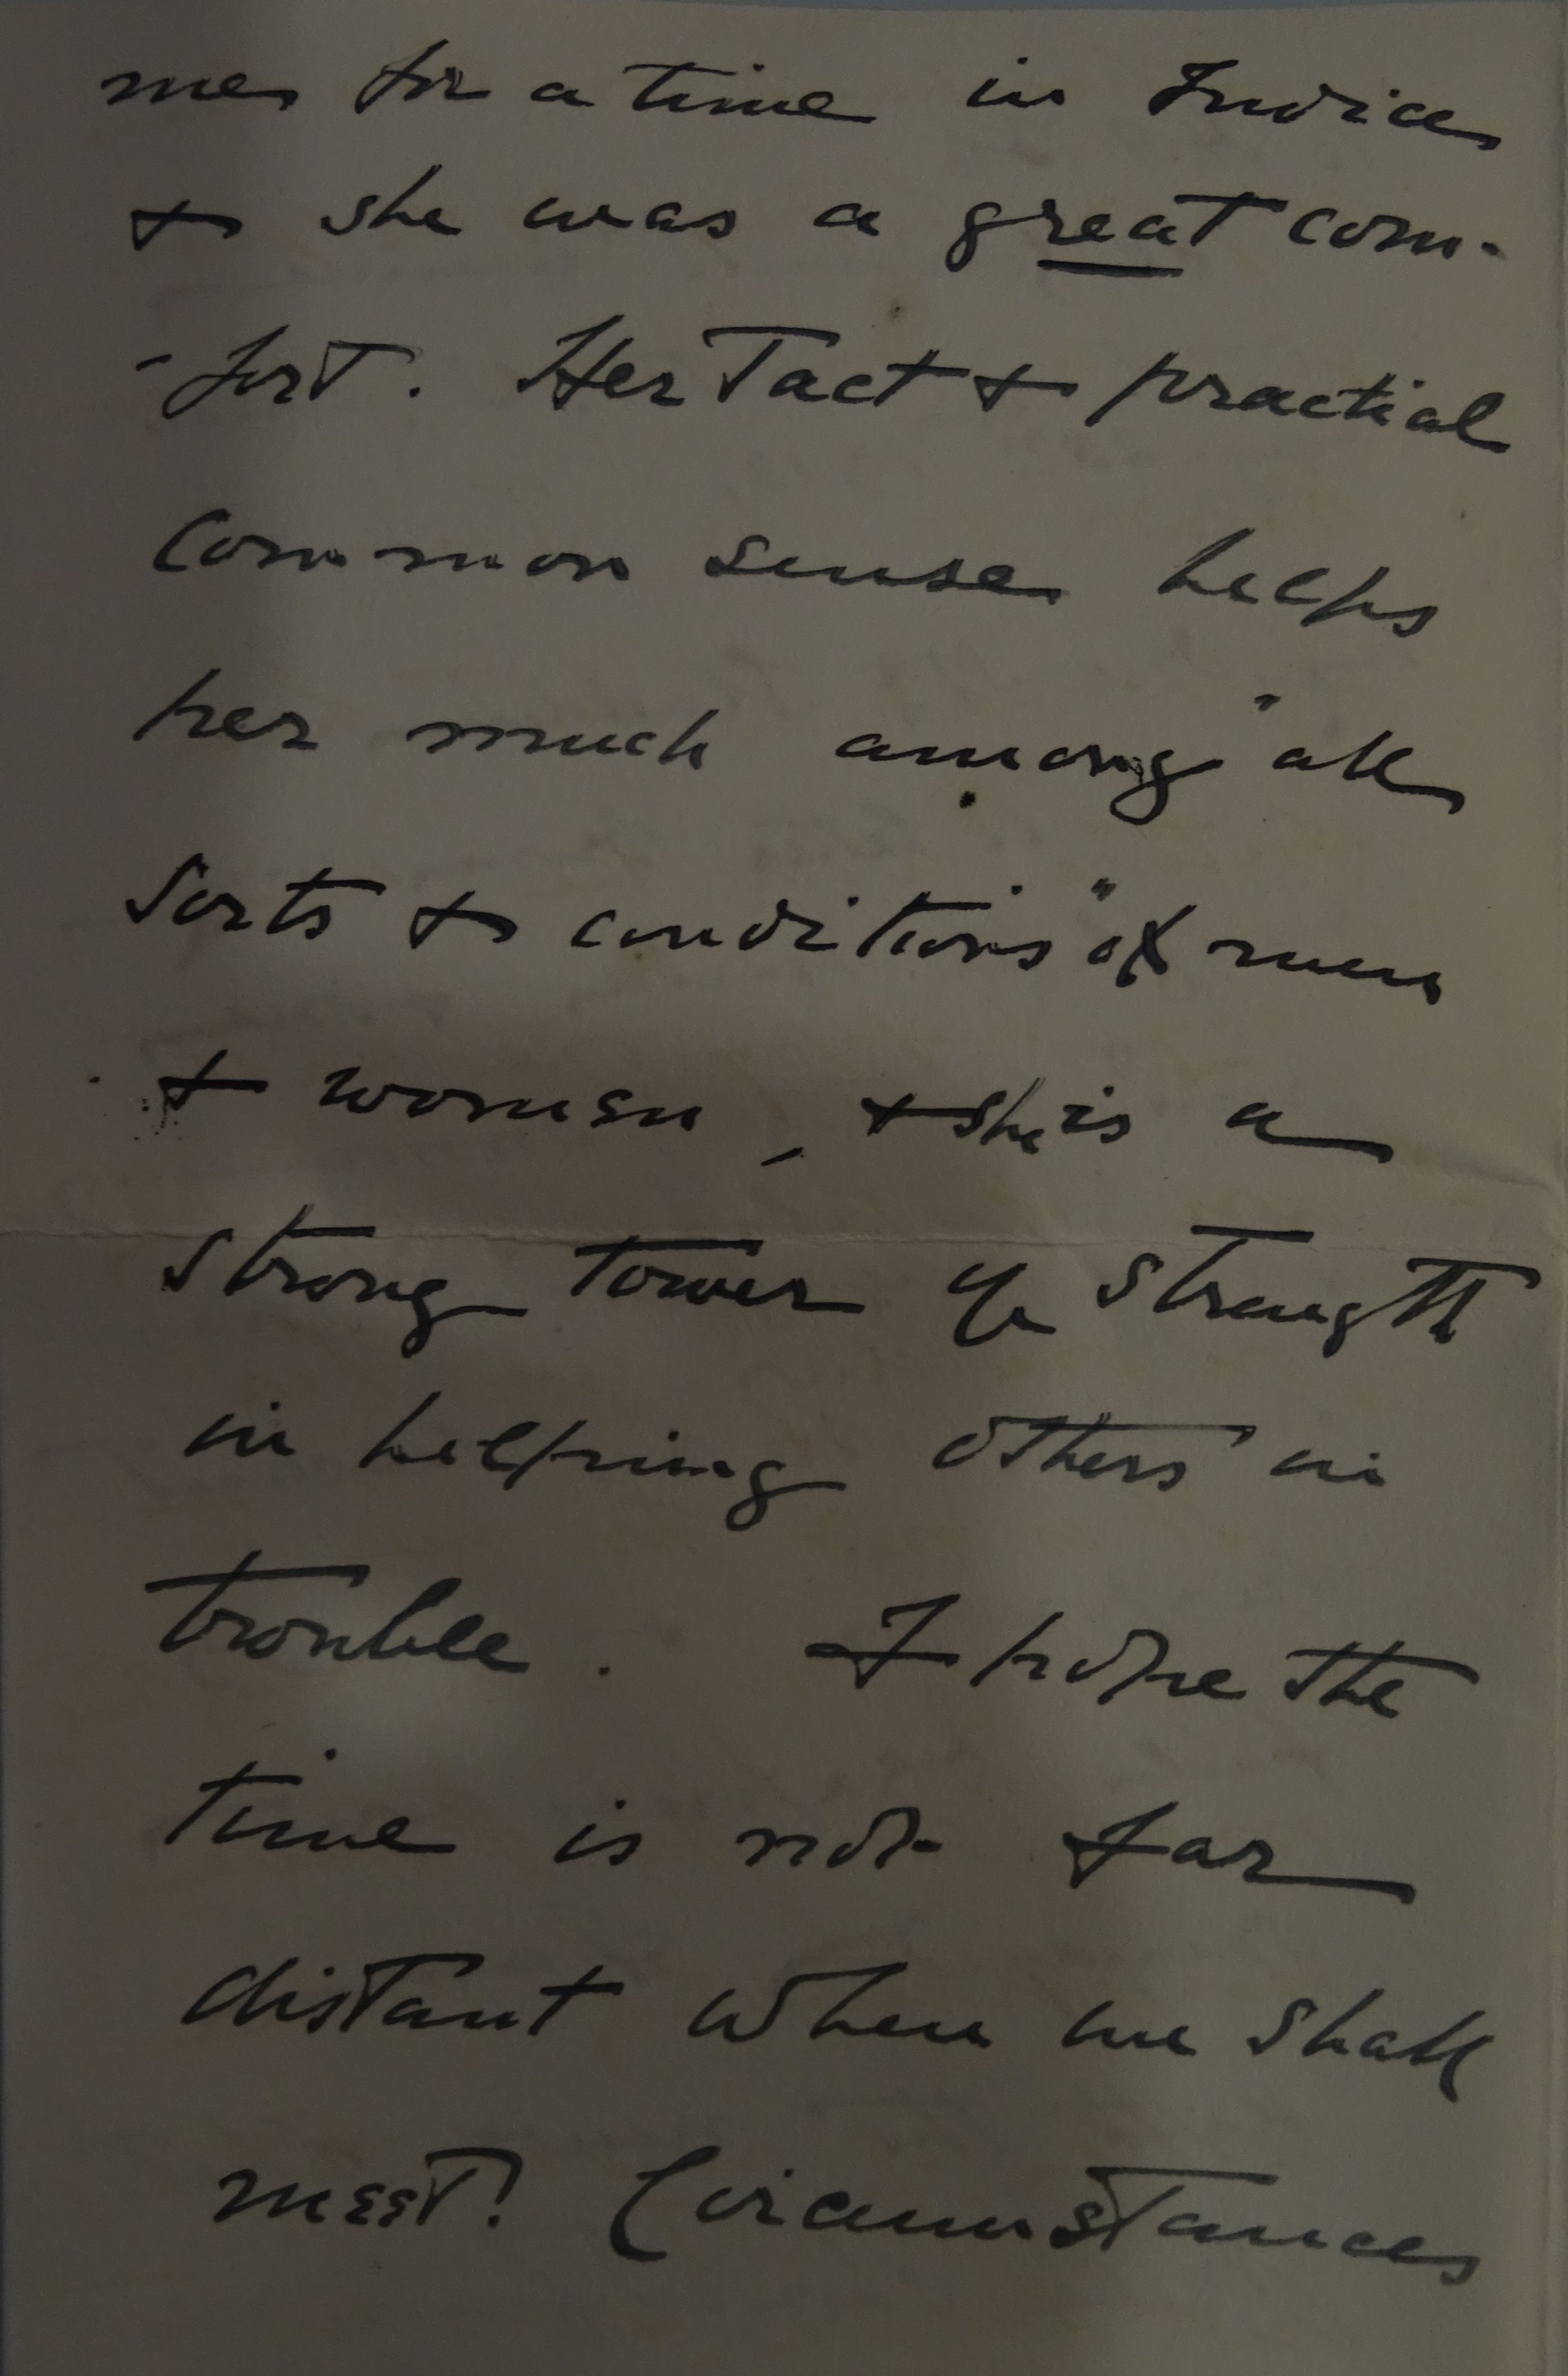 me for a time in India
& she was a great com-
-fort. Her Tact & practical
Common sense helps
her much among "all
sorts & conditions" of men
& women, & she is a
strong tower of strength
in helping others in
trouble. I hope the
time is not far
distant when we shall
meet! Circumstances